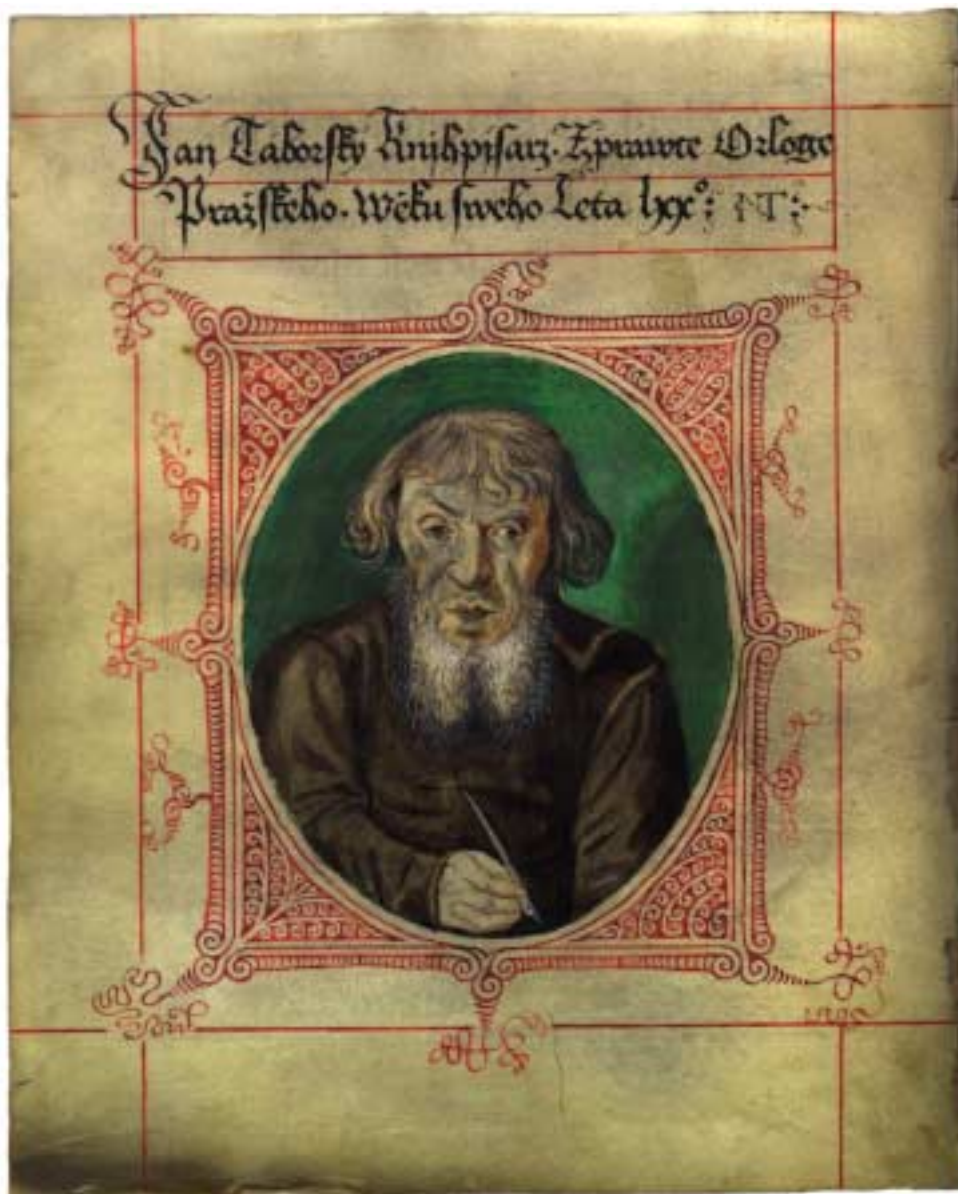 Jan Taborsky Knihpisarz. Zprawce Orloge
Pražskeho. Wěku sweho Leta lxx°: NT: